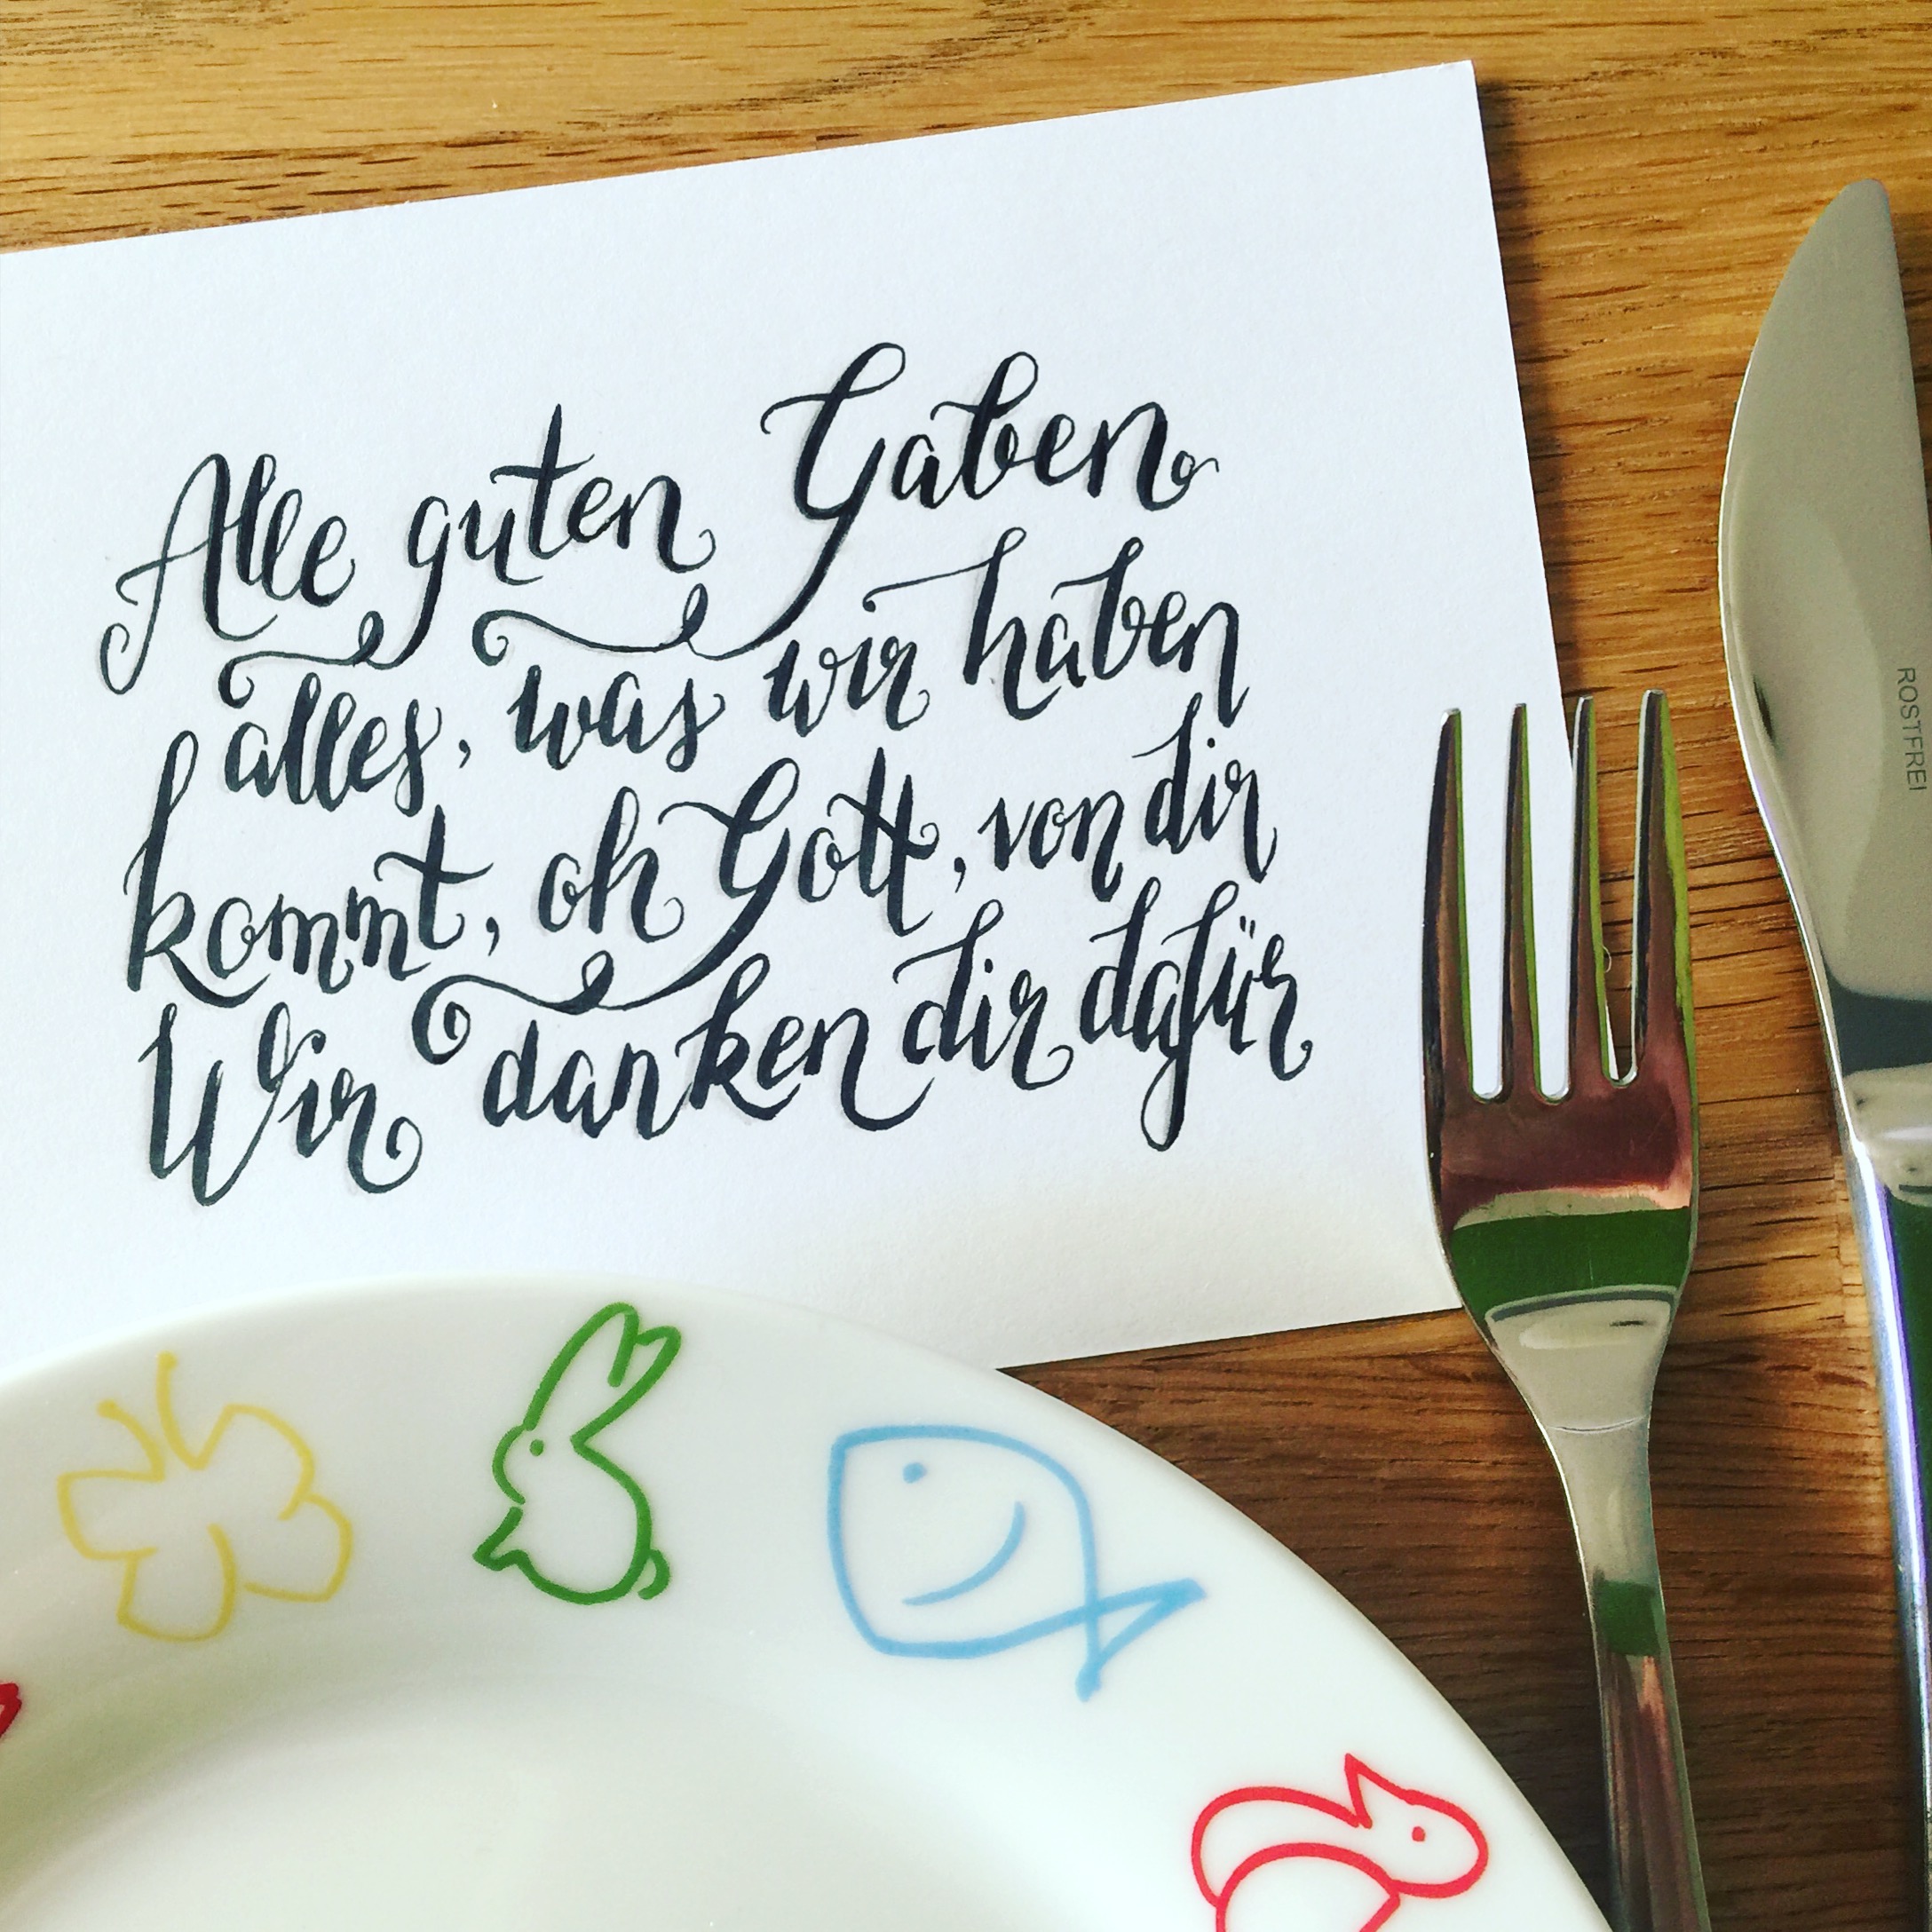 Alle guten Gaben
alles, was wir haben
kommt, oh Gott, von dir
Wir danken dir dafür
ROSTFREI